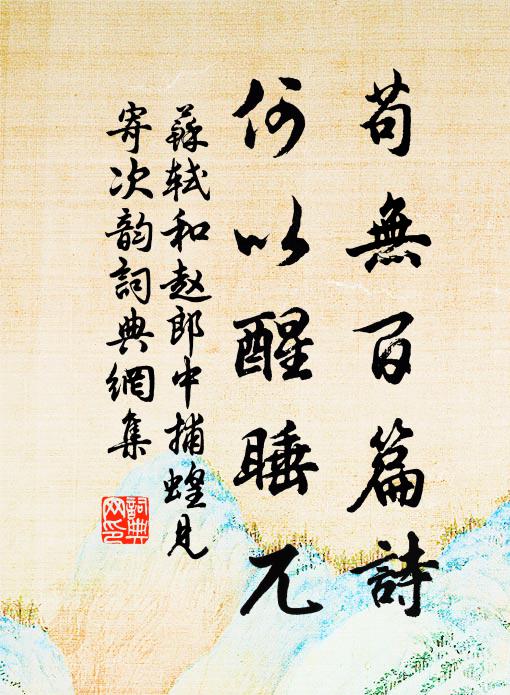 苟無百篇詩
何以醒睡兀
蘇軾和赵郎中捕蝗見
寄次韵詞典網集
詞典
网印